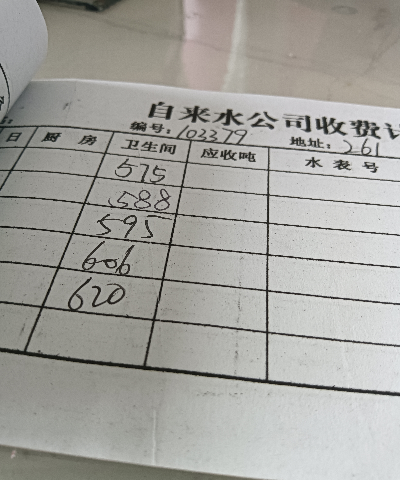 自来水公司收费
编号: 103379 地址: 261
日 厨 房 卫生间 应收吨 水 表 号
575
588
595
606
620